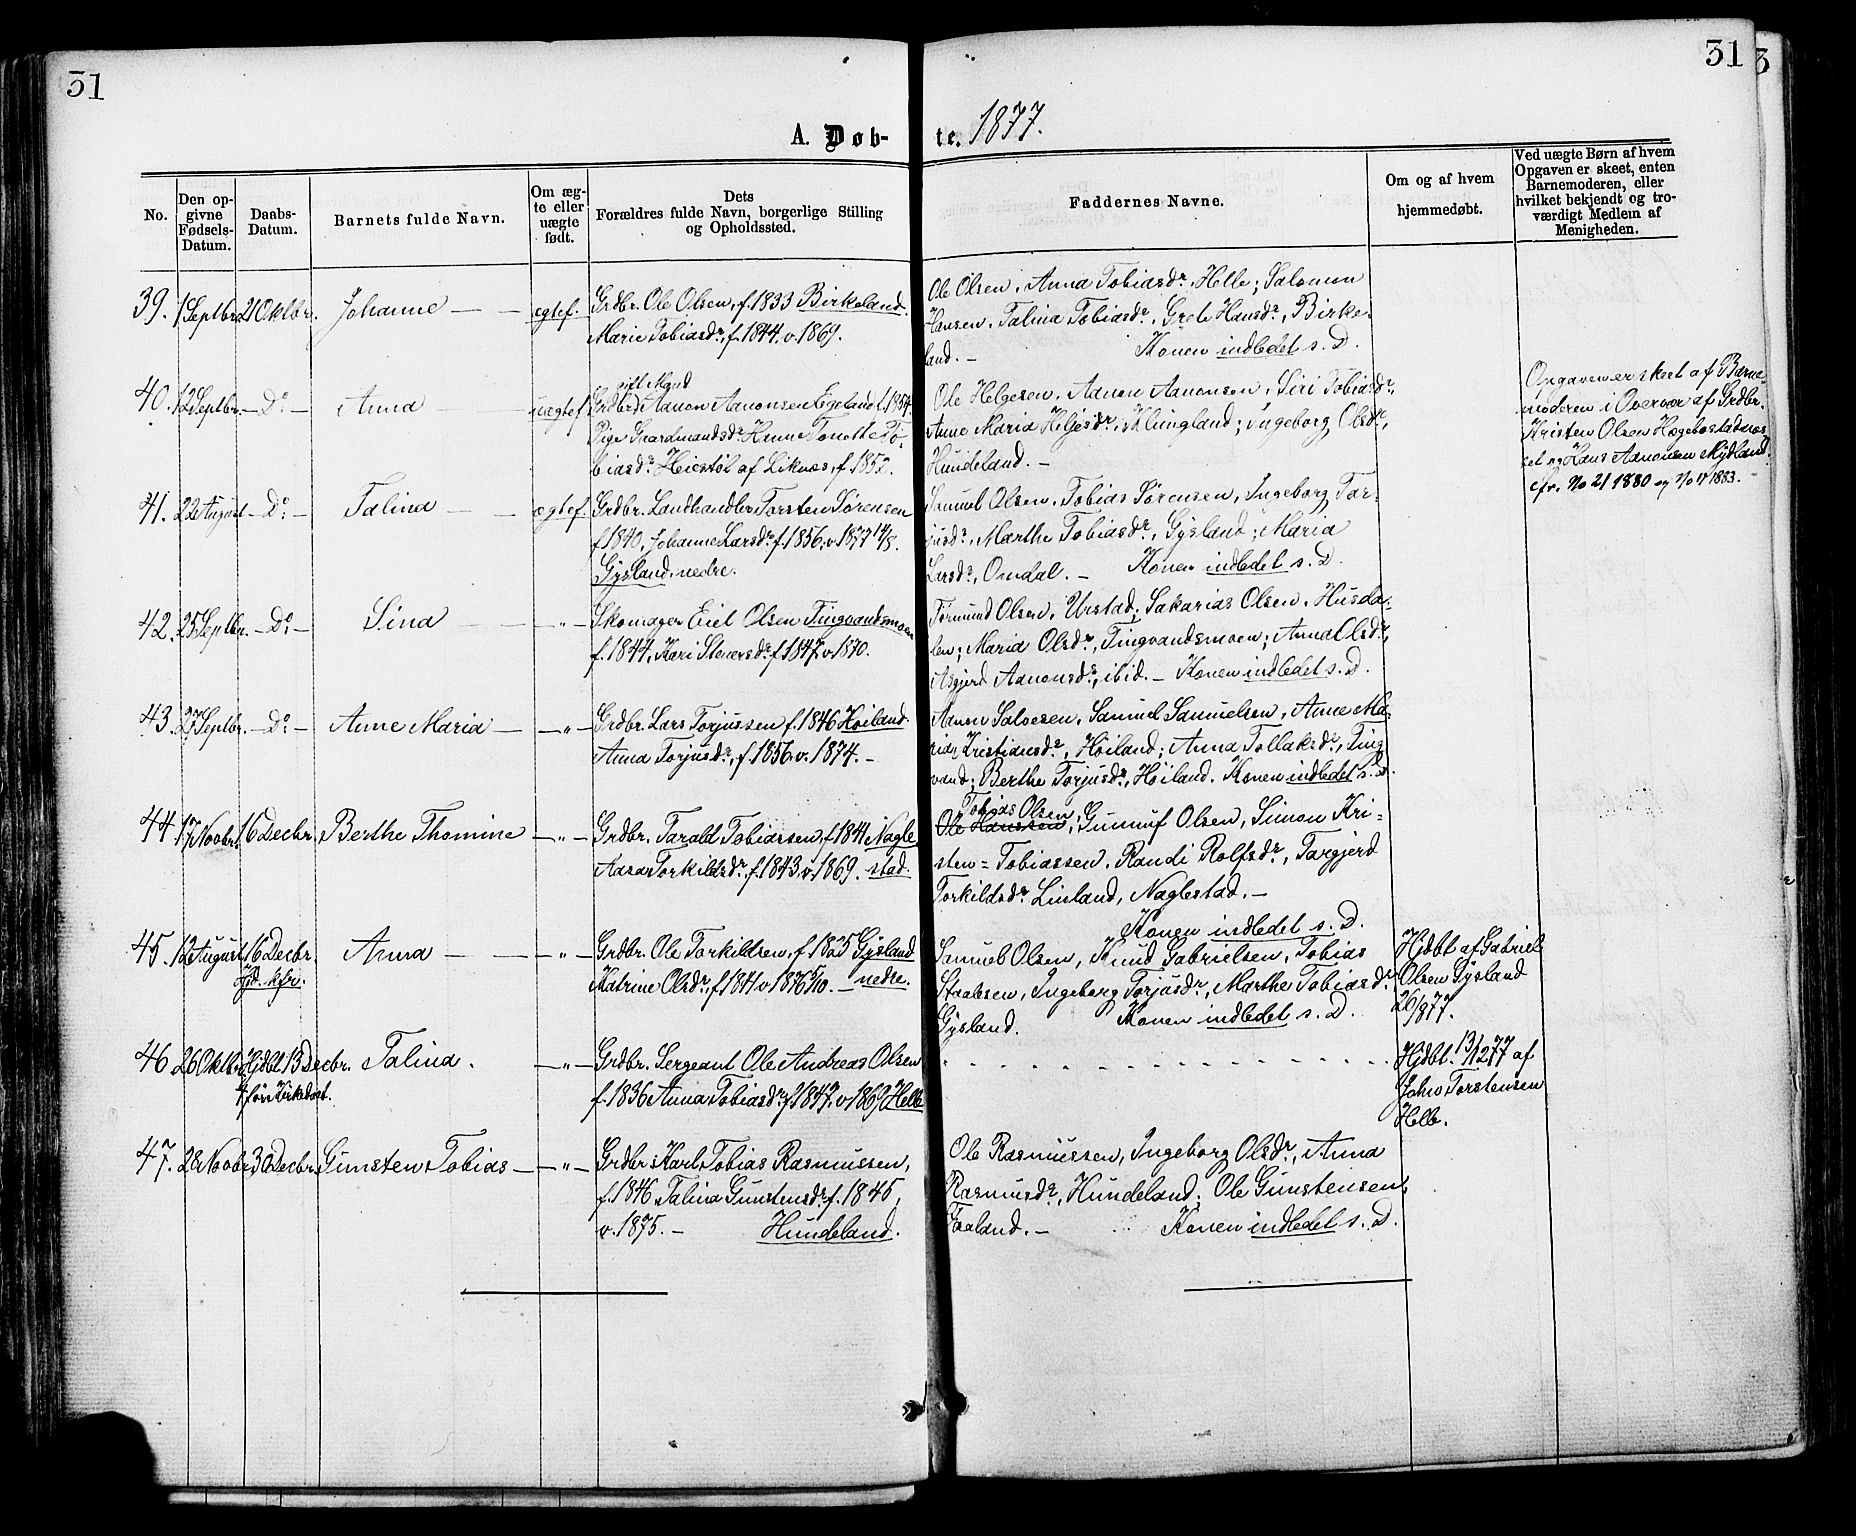 31
31
A. Døb-
te. 1877.
No.
Den op-
givne
Fødsels-
Datum.
Daabs-
Datum.
Barnets fulde Navn.
Om æg-
te eller
uægte
født.
Dets
Forældres fulde Navn, borgerlige Stilling
og Opholdssted.
Faddernes Navne.
Om og af hvem
hjemmedøbt.
Ved uægte Børn af hvem
Opgaven er skeet, enten
Barnemoderen, eller
hvilket bekjendt og tro-
værdigt Medlem af
Menigheden.
39. 1 Septbr. 21 Oktbr. Johanne — — ægtef.
Grdbr. Ole Olsen, f. 1833 Birkeland.
Marie Tobiasdr., f. 1844, v. 1869.
Ole Olsen, Anna Tobiasdr., Helle; Salomon
Hansen, Talina Tobiasdr., Grete Hansdr., Birke-
land. — Konen indledet s. D.
40. 12 Septbr. — Do — Anna — uægtef.
gift Mand
Grdbr. Adnon Adnonsen Eigeland f. 1854.
Pige Gaardmandsdr. Hanne Tonette To-
biasdr. Heistøl af Liknæs, f. 1852.
Ole Helgesen, Adnon Adnonsen, Siri Tobiasdr.,
Anne Maria Heljesdr., Klungland; Ingeborg Olsdr.,
Hundeland. —
Opgaven er skeet af Barne-
moderen i Overvær af Grdbr.
Kristen Olsen Hægebostadnes-
set og Hans Adnonsen Mydland.
cfr. No 21 1880 og No 17 1883. —
41. 22 August — Do — Talina — ægtef.
Grdbr. Landhandler Torsten Sørensen
f. 1840, Johanne Larsdr. f. 1856, v. 1877 14/8.
Gysland, nedre.
Samuel Olsen, Tobias Sørensen, Ingeborg Tor-
jusdr., Marthe Tobiasdr., Gysland; Maria
Larsdr., Omdal. — Konen indledet s. D.
42. 25 Septbr. — Do — Sina — — " —
Skomager Eiel Olsen Tingvandsmoen
f. 1844, Kari Stenersdr. f. 1847, v. 1870.
Tormund Olsen, Urstad; Sakarias Olsen, Husda-
len; Maria Olsdr., Tingvandsmoen; Anna Olsdr.,
Asgjerd Adnonsdr., ibid. — Konen indledet s. D.
43. 27 Septbr. — Do — Anne Maria — — " —
Grdbr. Lars Torjussen f. 1846 Høiland.
Anna Torjusdr., f. 1856, v. 1874. —
Adnon Salvesen, Samuel Samuelsen, Anne Ma-
ria Kristiansdr., Høiland; Anna Tollaksdr., Ting-
vand; Berthe Torjusdr., Høiland. Konen indledet s. D.
44. 17 Novbr. 16 Decbr. Berthe Thomine — — " —
Grdbr. Tarald Tobiassen, f. 1841 Nagle
Aasa Torkildsdr., f. 1843, v. 1869. stad.
Tobias Olsen
Ole Hanssen, Gunnuf Olsen, Simon Kri-
sten = Tobiassen, Randi Rolfsdr., Targjerd
Torkildsdr. Linland, Naglestad. —
Konen indledet s. D.
45. 12 August 16 Decbr. Anna — — — " —
Hjd. kfr.
Grdbr. Ole Torkildsen, f. 1825 Gysland
Katrine Olsdr., f. 1841 v. 1876 5/10. — nedre.
Samuel Olsen, Knud Gabrielsen, Tobias
Staalesen, Ingeborg Torjusdr., Marthe Tobiasdr.
Gysland. Konen indledet s. D.
Hjdbt af Gabriel
Olsen Gysland
26/8 77.
46. 26 Oktbr. Hjdbt 13 Decbr. Talina. — " —
† før Kirkedaab.
Grdbr. Sergeant Ole Andreas Olsen
f. 1836 Anna Tobiasdr. f. 1842, v. 1869 Helle
Hjdbt. 13/12 77 af
John Torstensen
Helle.
47. 28 Novbr. 30 Decbr. Gunsten Tobias — — " —
Grdbr. Karl Tobias Rasmussen,
f. 1846, Talina Gunstensdr. f. 1845,
v. 1875. — Hundeland.
Ole Rasmussen, Ingeborg Olsdr., Anna
Rasmusdr., Hundeland; Ole Gunstensen,
Faaland. — Konen indledet s. D.